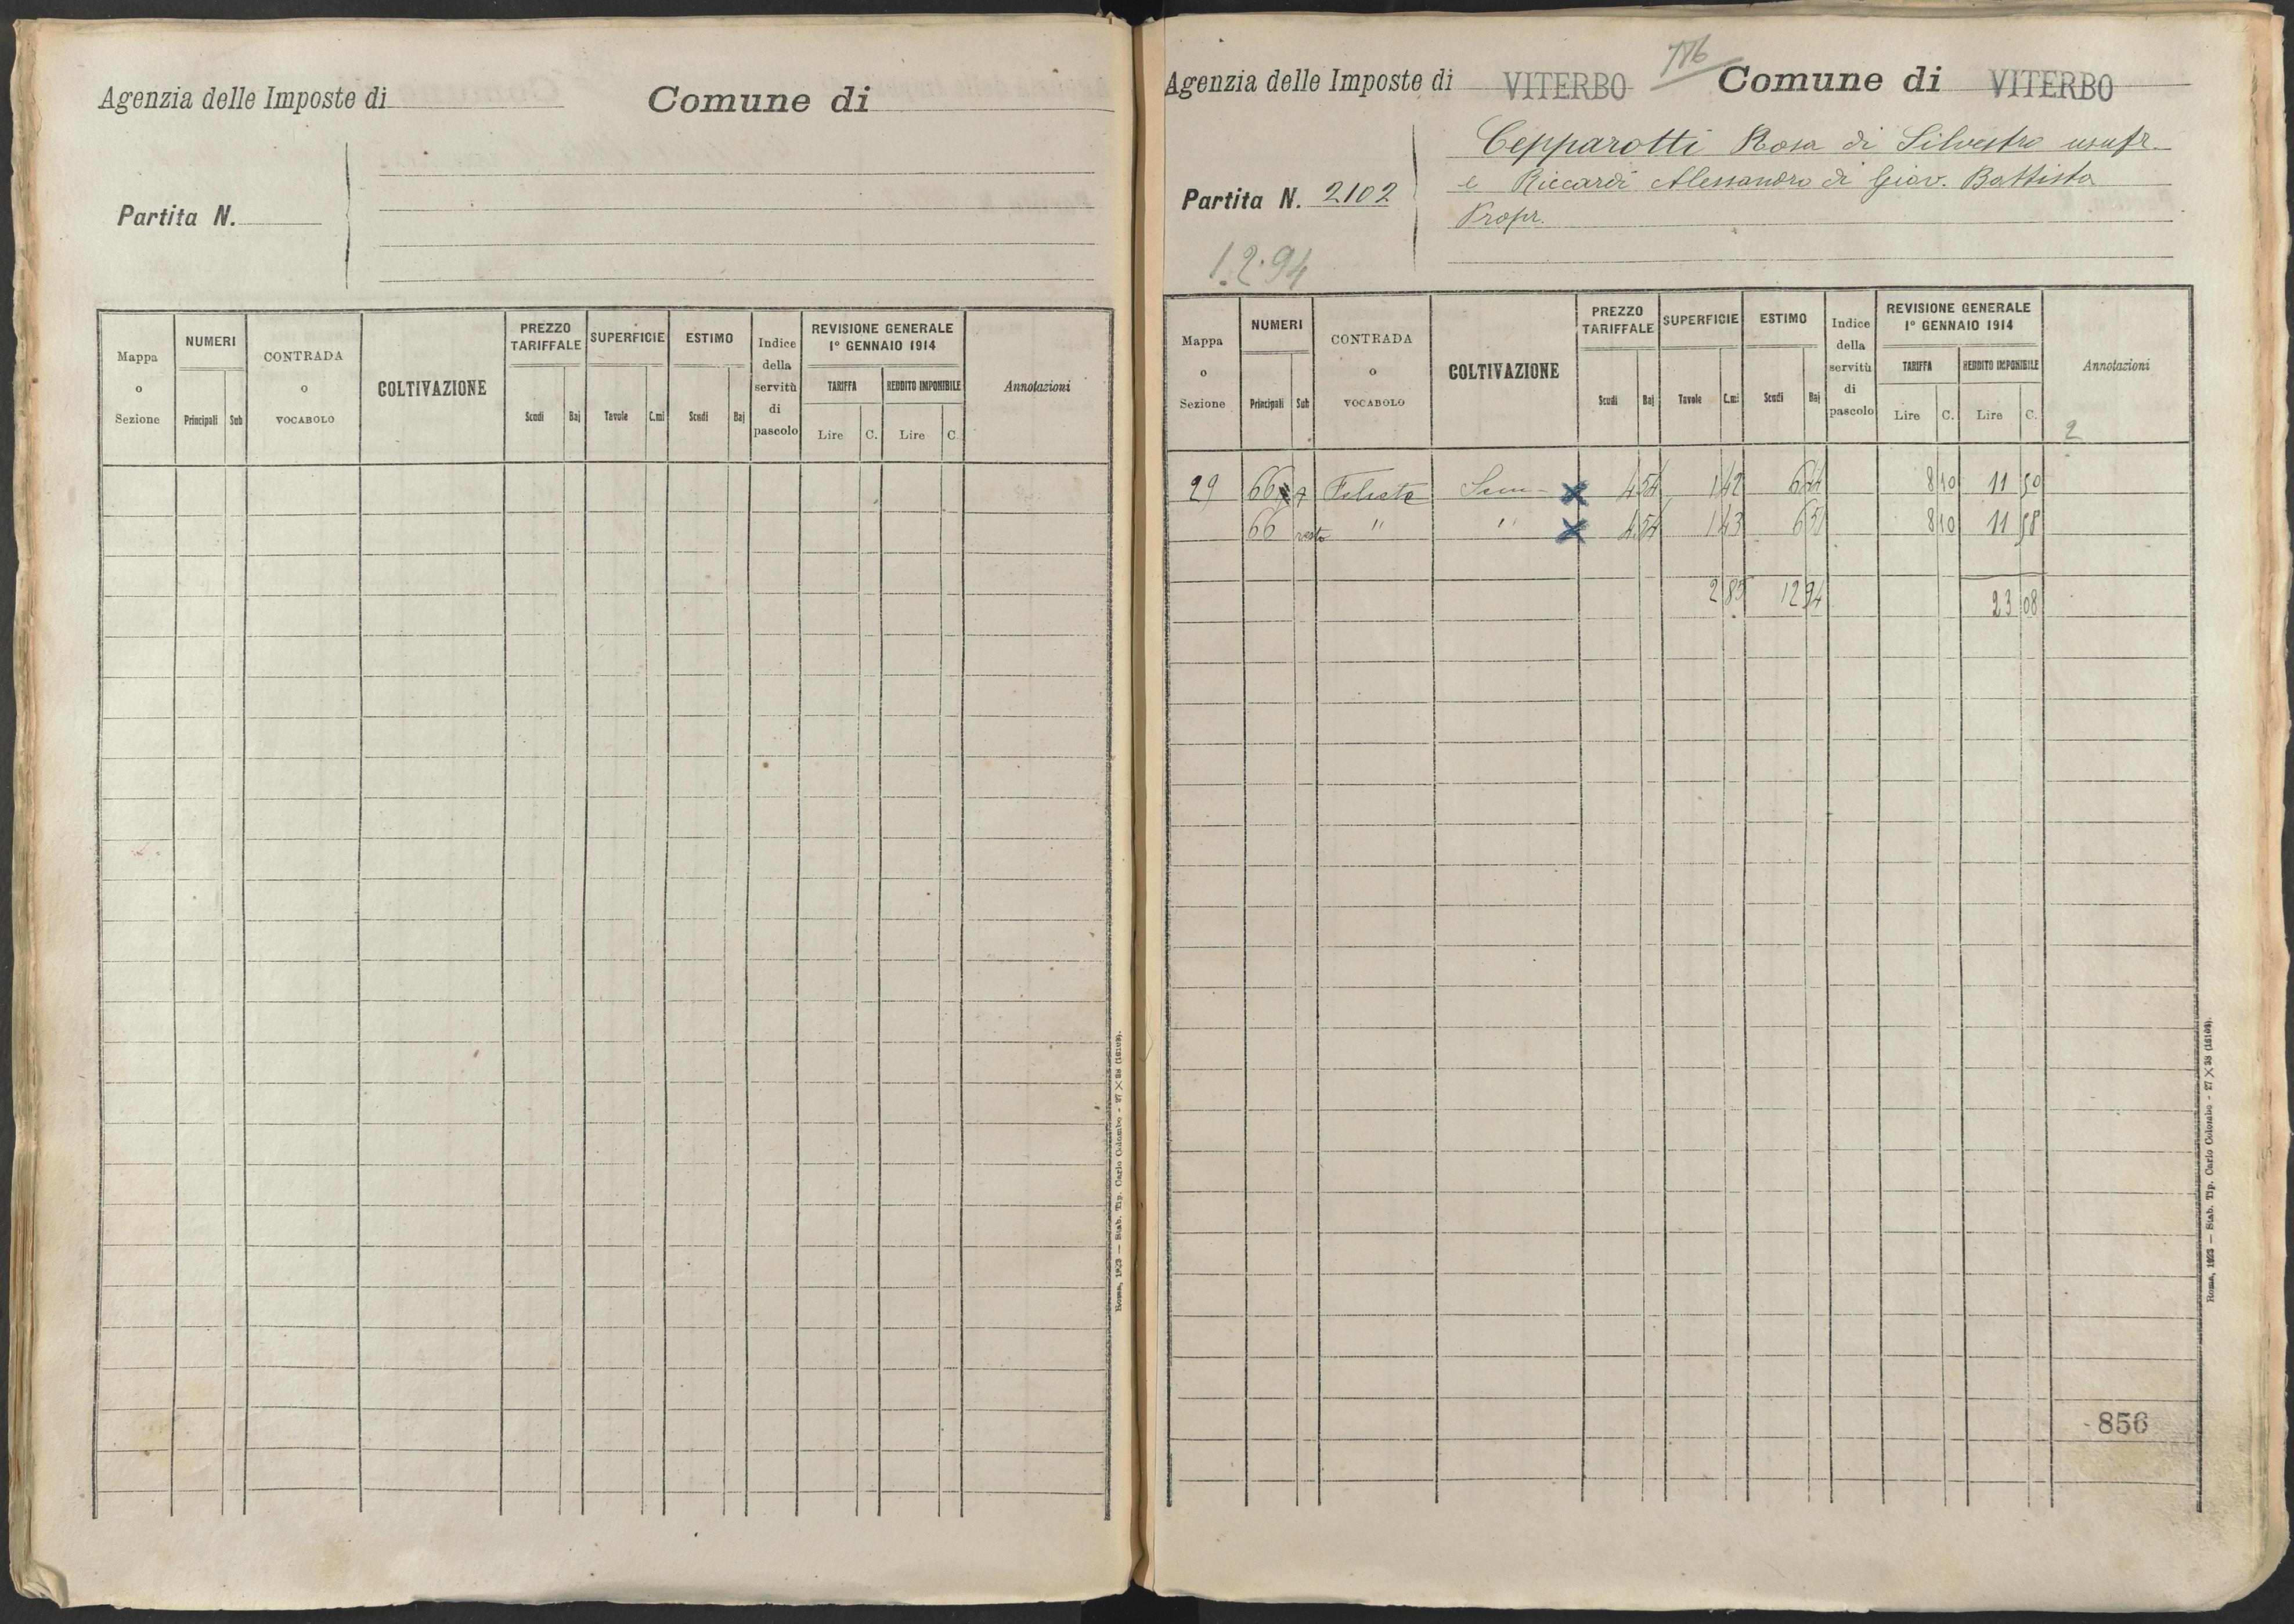 Agenzia delle Imposte di
Comune di
Partita N.
Mappa o Sezione
NUMERI
Principali Sub
CONTRADA o VOCABOLO
COLTIVAZIONE
PREZZO TARIFFALE
Scudi Baj
SUPERFICIE
Tavole C.mi
ESTIMO
Scudi Baj
Indice della servitù di pascolo
REVISIONE GENERALE
1° GENNAIO 1914
TARIFFA REDDITO IMPONIBILE
Lire C. Lire C.
Annotazioni
Roma, 1923 — Stab. Tip. Carlo Colombo - 27 X 38 (16103).
Agenzia delle Imposte di VITERBO Comune di VITERBO
Cepparotti Rosa di Silvestro usufr.
e Riccardi Alessandro di Giov. Battista
Partita N. 2102
Propr.
12.94
Mappa o Sezione
NUMERI
Principali Sub
CONTRADA o VOCABOLO
COLTIVAZIONE
PREZZO TARIFFALE
Scudi Baj
SUPERFICIE
Tavole C.mi
ESTIMO
Scudi Baj
Indice della servitù di pascolo
REVISIONE GENERALE
1° GENNAIO 1914
TARIFFA REDDITO IMPONIBILE
Lire C. Lire C.
Annotazioni
2
29 66 Sem 4 54 1 42 6 44 8 10 11 50
66 resto " " 4 54 1 43 6 50 8 10 11 58
2 85 12 94 23 08
856
Roma, 1923 — Stab. Tip. Carlo Colombo - 27 X 38 (16103).